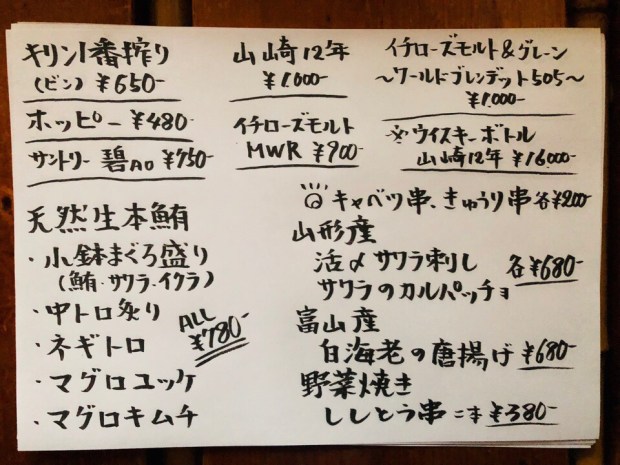 キリン一番搾り
(ビン) ¥650-
ホッピー ¥480-
サントリー 碧Ao ¥750-
山崎12年
¥1.000-
イチローズモルト
MWR ¥900-
イチローズモルト&グレーン
～ワールドブレンデット505～
¥1.000-
※ウイスキーボトル
山崎12年 ¥16000-
天然生本鮪
・小鉢まぐろ盛り
(鮪・サワラ・イクラ)
・中トロ炙り
・ネギトロ
・マグロユッケ
・マグロキムチ
ALL
¥780-
キャベツ串、きゅうり串 各¥200
山形産
活〆サワラ刺し
サワラのカルパッチョ
各¥680-
富山産
白海老の唐揚げ ¥680-
野菜焼き
ししとう串 二本 ¥380-